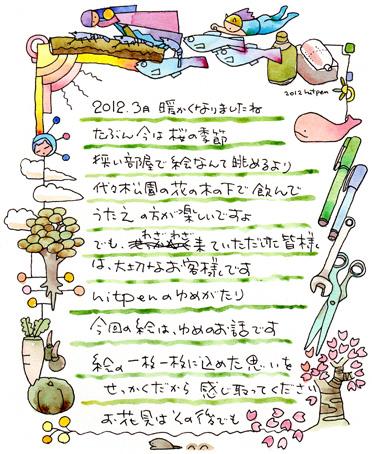 2012 hitpen
2012.3月 暖かくなりましたね
たぶん今は桜の季節
狭い部屋で絵なんて眺めるより
代々木公園の花の木の下で飲んで
うたえの方が楽しいですよ
でも、わざわざ来ていただけた皆様
は、大切なお客様です
hitpenのゆめがたり
今回の絵は、ゆめのお話です
絵の一枚一枚に込めた思いを
せっかくだから 感じ取ってください
お花見はその後でも